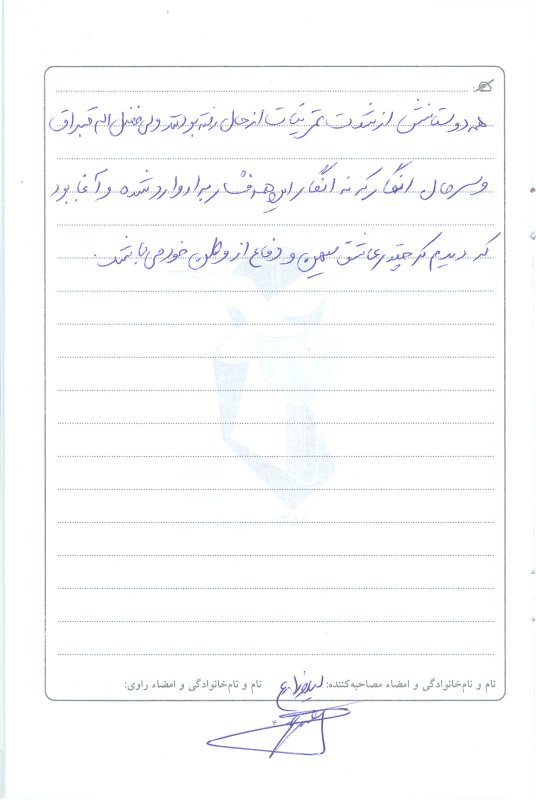 همه دوستانش از شدت تمرینات از حال رفته بودند ولی فضل اله قبراق
و سرحال انگار که نه انگار این همه فشار به او وارد شده و آنجا بود
که دیدم که چقدر عاشق میهن و دفاع از وطن خود می باشد.
نام و نام‌خانوادگی و امضاء مصاحبه‌کننده:
نام و نام‌خانوادگی و امضاء راوی: